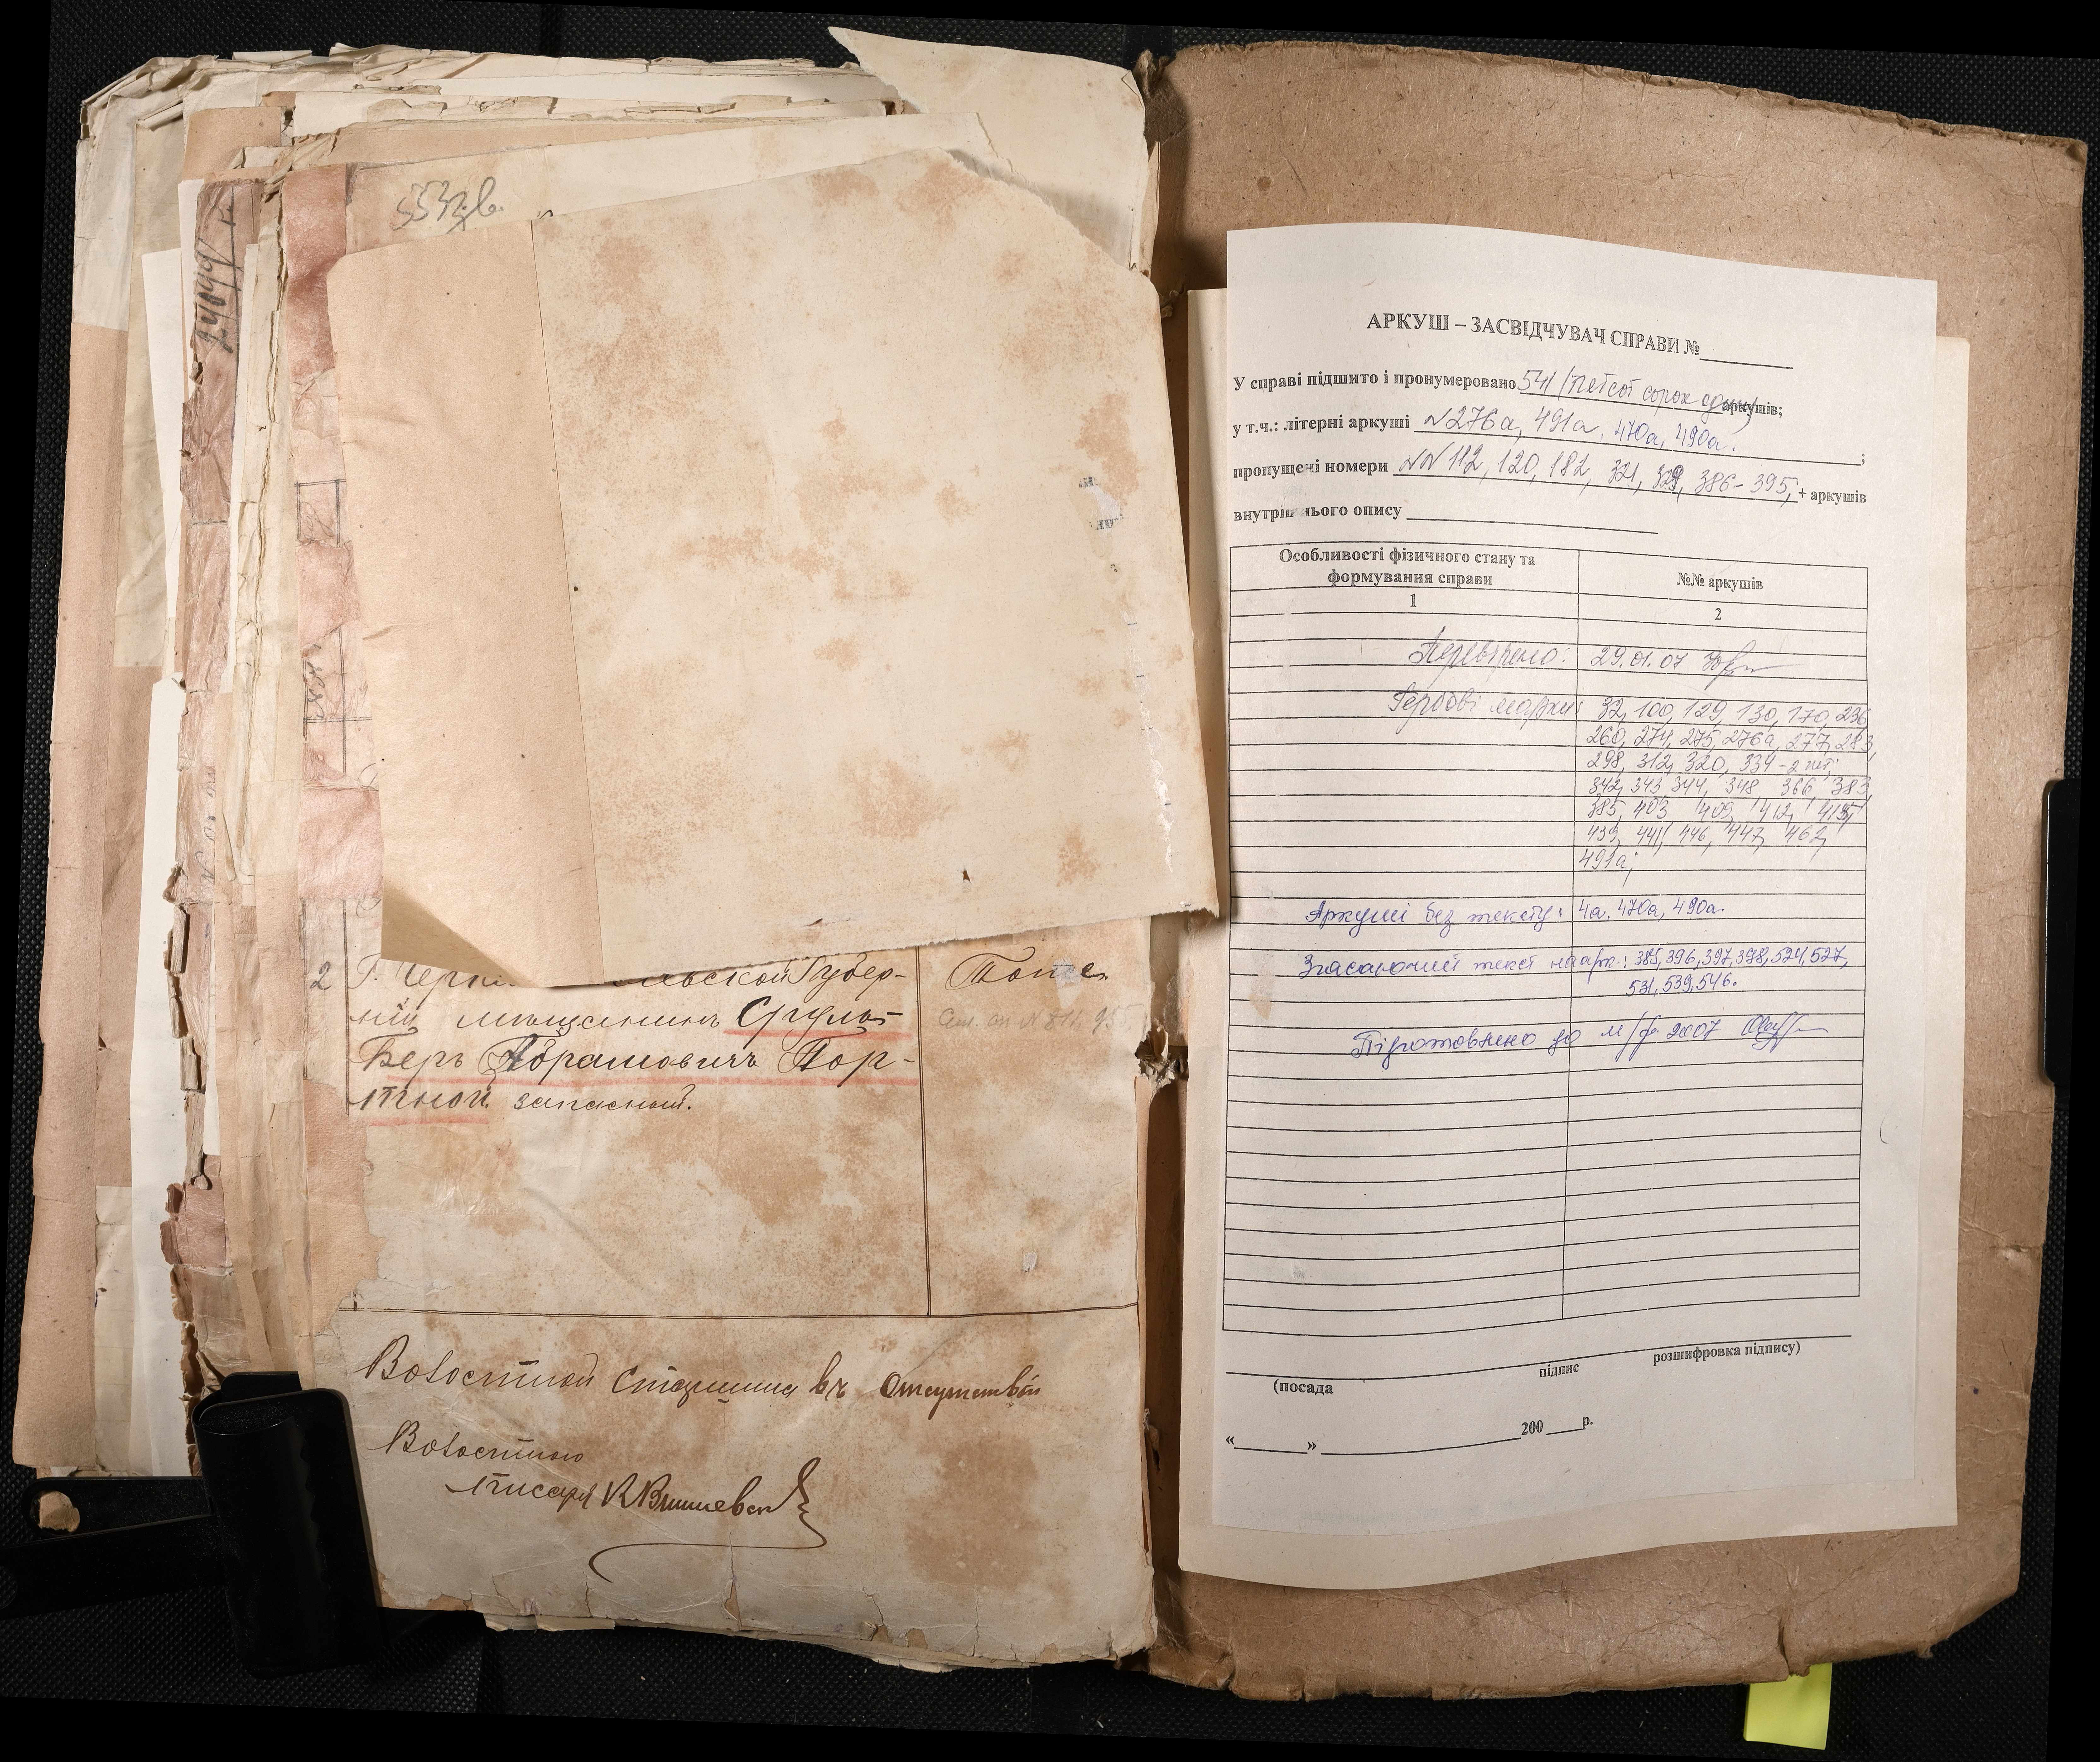 553зв.
24099/
2 Г. Черни льской Губер-
ніи мѣщанинъ Сруль-
Беръ Абрамовичъ Пор-
тной запасный.
Тоже
Волостной Старшина въ Отсутствіи
Волостного
писаря К Вишневск
АРКУШ – ЗАСВІДЧУВАЧ СПРАВИ №
У справі підшито і пронумеровано 541 (пятсот сорок один) аркушів;
у т.ч.: літерні аркуші №276а, 491а, 470а, 490а. ;
пропущені номери №№ 112, 120, 182, 321, 329, 386-395, + аркушів
внутрішнього опису
Особливості фізичного стану та
формування справи
№№ аркушів
1
2
Перевірено: 29.01.07
Гербові марки: 32, 100, 129, 130, 170, 236,
260, 274, 275, 276а, 277, 283,
298, 312, 320, 334 - 2 шт;
342, 343 344, 348, 366, 383,
385, 403, 409, 412, 415,
439, 441, 446, 447, 462,
491а;
Аркуші без тексту: 4а, 470а, 490а.
Згасаючий текст на арк.: 385, 396, 397, 398, 524, 527,
531, 539, 546.
Підготовлено до м/ф 2007
(посада
підпис
розшифровка підпису)
« » 200 р.